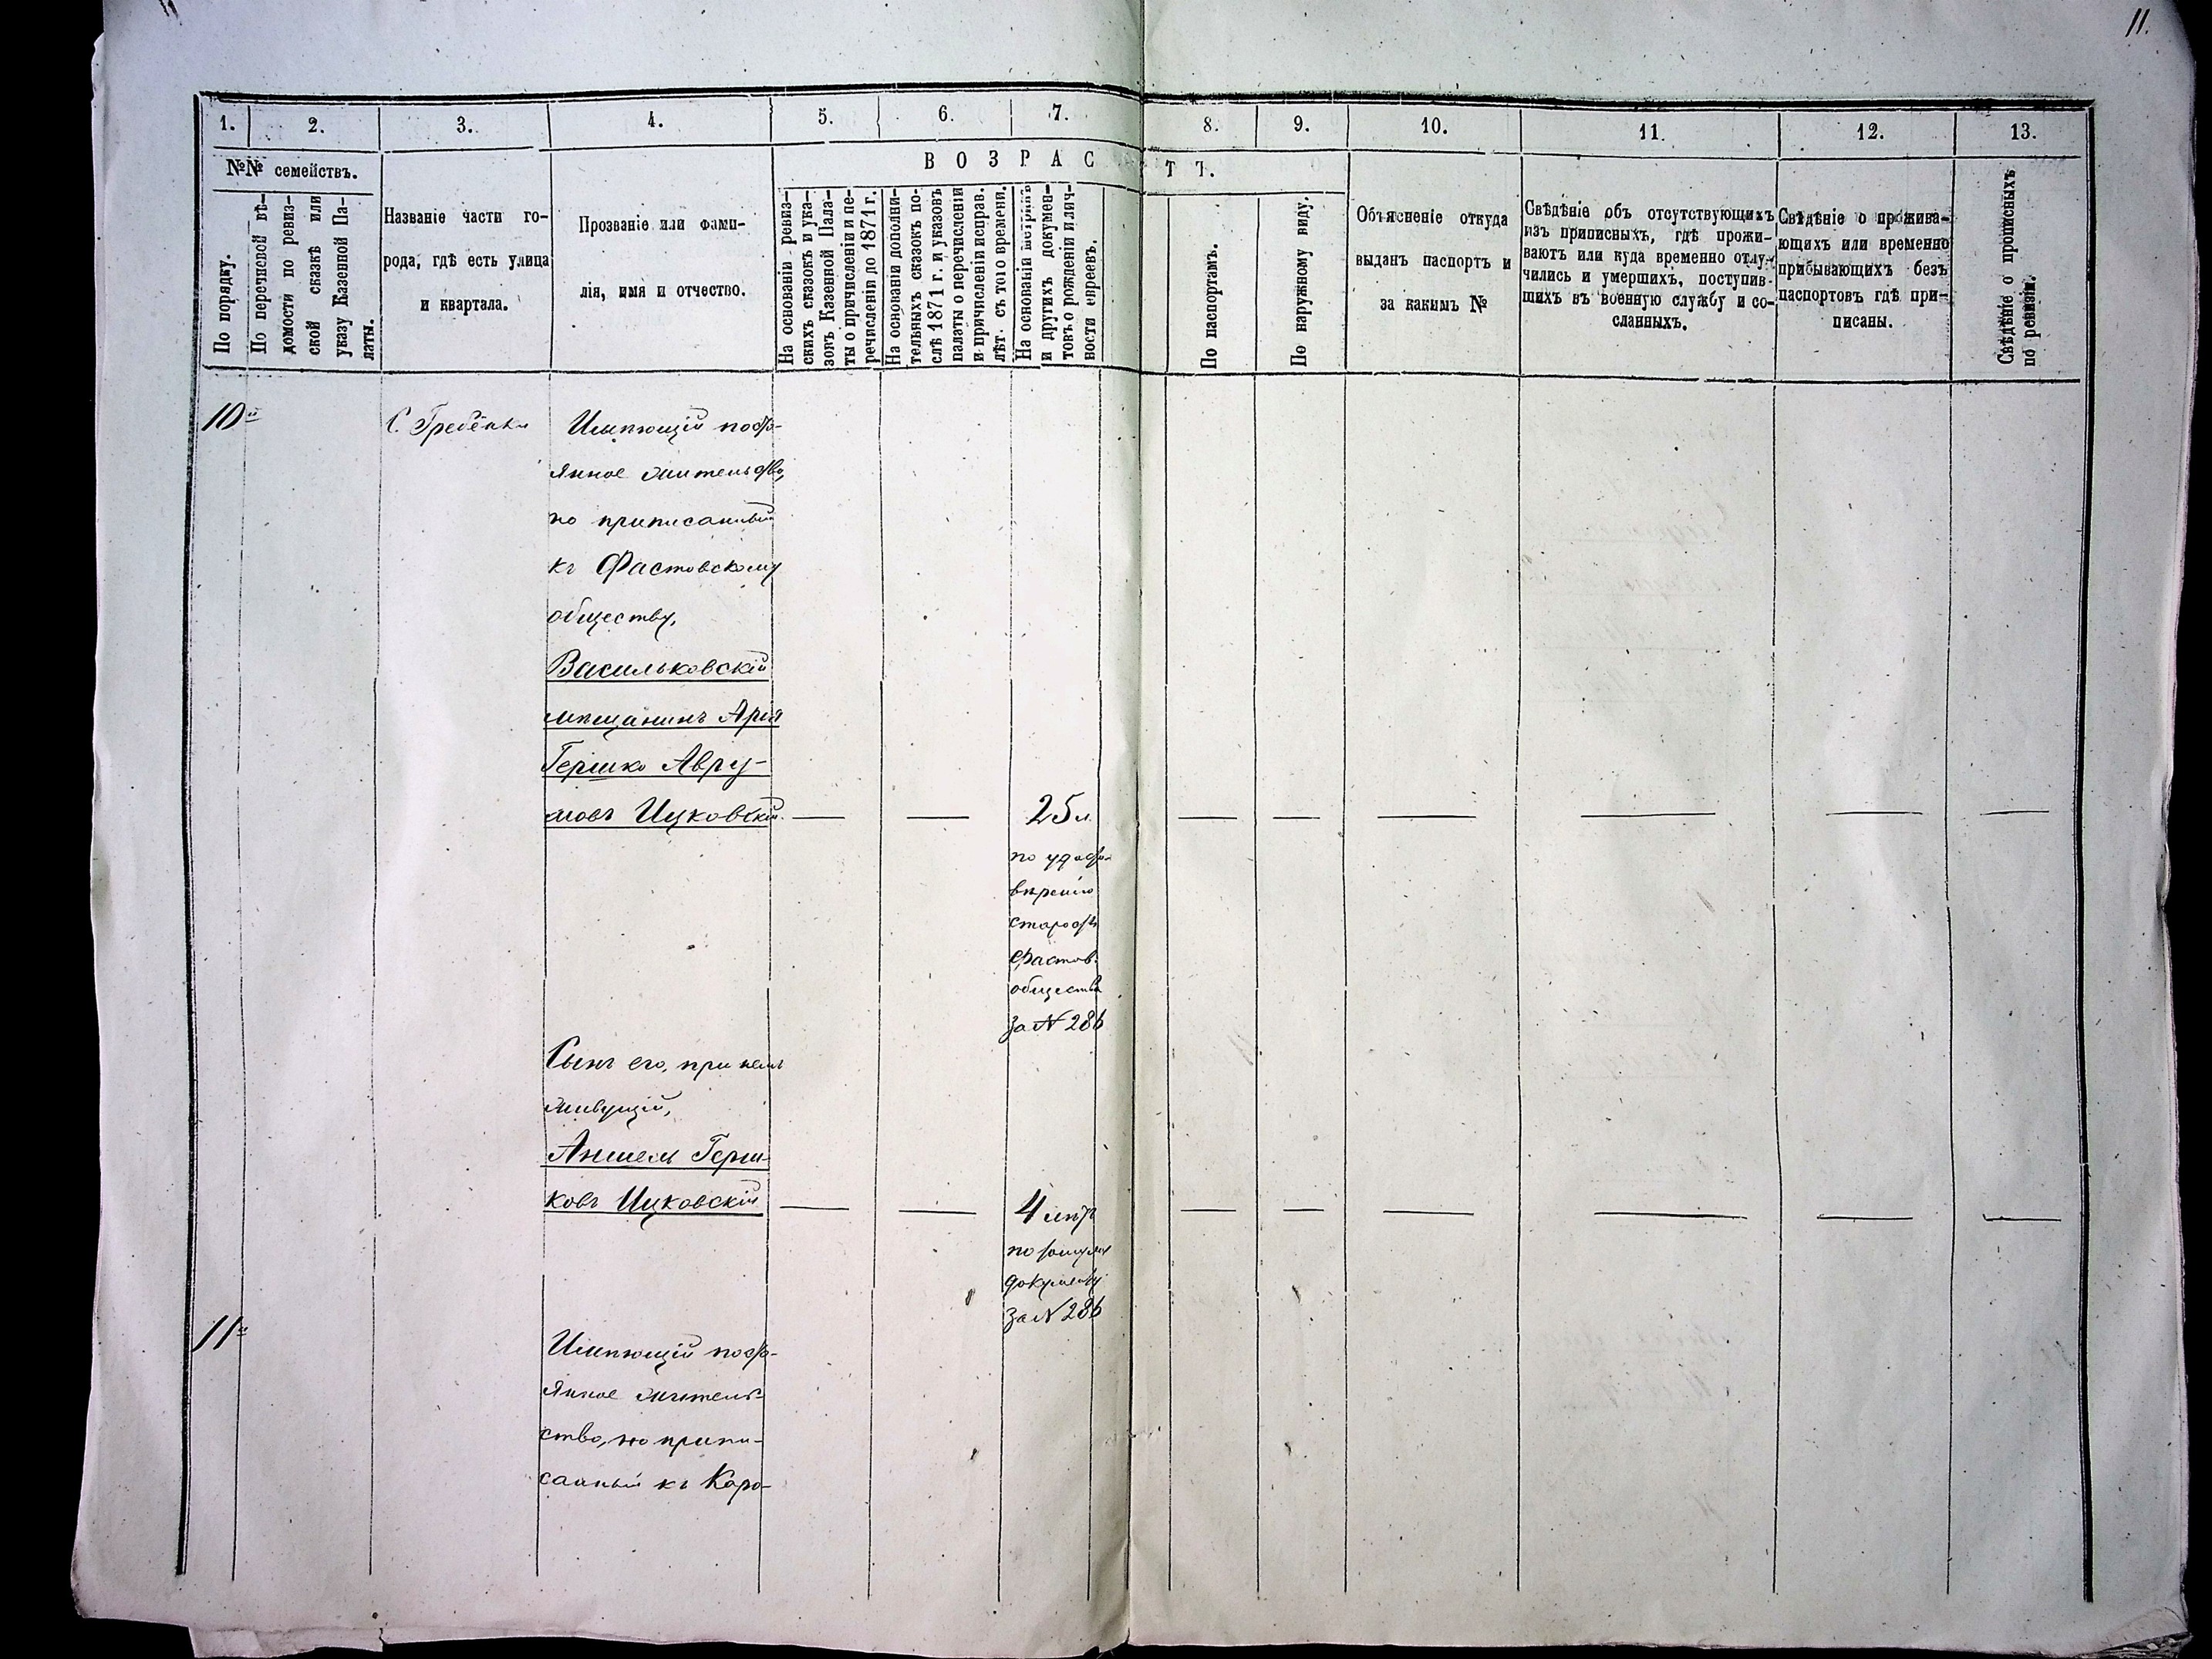 11.
1. 2. 3. 4. 5. 6. 7. 8. 9. 10. 11. 12. 13.
№№ семействъ.
По порядку.
По переписной вѣ-
домости по ревиз-
ской сказкѣ или
указу Казенной Па-
латы.
Названіе части го-
рода, гдѣ есть улица
и квартала.
Прозваніе или фами-
лія, имя и отчество.
ВОЗРАСТЪ.
На основаніи ревиз-
скихъ сказокъ и ука-
зовъ Казенной Пала-
ты о причисленіи и пе-
речисленіи до 1871 г.
На основаніи дополни-
тельныхъ сказокъ по-
слѣ 1871 г. и указовъ
палаты о перечисленіи
и причисленіи исправ.
лѣт. съ того времени.
На основаніи метрикъ
и другихъ докумен-
товъ о рожденіи и лич-
ности евреевъ.
По паспортамъ.
По наружному виду.
Объясненіе откуда
выданъ паспортъ и
за какимъ №
Свѣдѣніе объ отсутствующихъ
изъ приписныхъ, гдѣ прожи-
ваютъ или куда временно отлу-
чились и умершихъ, поступив-
шихъ въ военную службу и со-
сланныхъ.
Свѣдѣніе о прожива-
ющихъ или временно
прибывающихъ безъ
паспортовъ гдѣ при-
писаны.
Свѣдѣніе о прописныхъ
по ревизіи.
10й С. Гребёнки Имѣющій посто-
янное жительство,
но приписанный
къ Фастовскому
обществу,
Васильковскій
мѣщанинъ Арія
Гершко Авру-
мовъ Ицковскій. — — 25 л. — — — — — —
по удосто-
вѣренію
старосты
Фастов.
общества
за № 286
Сынъ его, при немъ
живущій,
Аншель Герш-
ковъ Ицковскій — — 4 лѣтъ — — — — — —
по
документу
за № 286
11й Имѣющій посто-
янное житель-
ство, но припи-
санный къ Каро-